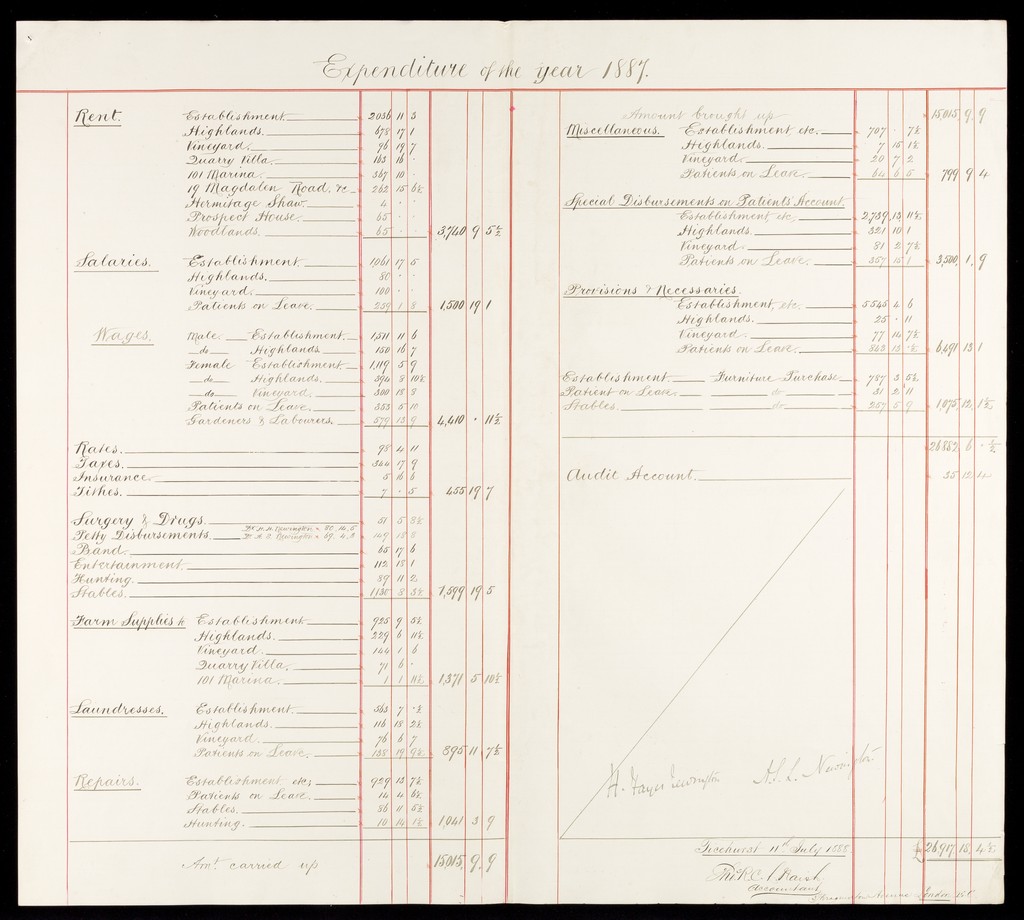 Expenditure of the year 1887.
Rent. Establishment 2036 11 3
Highlands. 678 17 1
Vineyard. 96 19 7
Quarry Villa. 163 16 ·
101 Marina. 367 10 ·
19 Magdalen Road. &c 262 15 6½
Hermitage Shaw. 4 · ·
Prospect House. 65 · ·
Woodlands. 65 · · 3,740 9 5½
Salaries. Establishment 1061 17 5
Highlands. 80 · ·
Vineyard. 100 · ·
Patients on Leave. 259 1 8 1,500 19 1
Wages. Male. Establishment. 1,511 11 6
do Highlands. 150 16 7
Female Establishment. 1,119 5 9
do Highlands. 394 8 10½
do Vineyard. 300 18 8
Patients on Leave. 353 5 10
Gardeners & Labourers. 579 13 9 4,410 · 11½
Rates. 98 4 11
Taxes. 344 17 9
Insurance. 5 16 6
Tithes. 7 · 5 455 19 7
Surgery & Drugs. 51 5 8½
Petty Disbursements. Dr. H. H. Newington = 80. 14. 5
Dr. A. S. Newington = 69. 4. 3 149 18 8
Band. 65 17 6
Entertainment. 112 18 1
Hunting. 89 11 2
Stables. 1130 8 3½ 1,599 19 5
Farm Supplies &c Establishment 925 9 5½
Highlands. 229 6 11½
Vineyard. 144 1 6
Quarry Villa. 71 6 ·
101 Marina. 1 1 11½ 1,371 5 10½
Laundresses. Establishment. 563 7 ·½
Highlands. 116 18 2½
Vineyard. 76 6 7
Patients on Leave. 138 19 9½ 895 11 7½
Repairs. Establishment etc; 929 13 7½
Patients on Leave. 14 4 6½
Stables. 86 11 5½
Hunting. 10 14 1½ 1,041 3 9
Amt. carried up 15015 9 9
Amount brought up 15015 9 9
Miscellaneous. Establishment etc. 707 · 7½
Highlands. 7 15 1½
Vineyard. 20 7 2
Patients on Leave. 64 6 5 799 9 4
Special Disbursements on Patients' Account.
Establishment etc. 2,739 13 11½
Highlands. 321 10 1
Vineyard. 81 2 7½
Patients on Leave. 357 15 1 3,500 1 9
Provisions & Necessaries.
Establishment, etc. 5545 4 6
Highlands. 25 · 11
Vineyard. 77 14 7½
Patients on Leave. 843 13 ·½ 6,491 13 1
Establishment. Furniture Purchase 787 3 5½
Patient on Leave. do 31 2 11
Stables. do 257 5 9 1,075 12 1½
26882 6 ·½
Audit Account. 35 12 4
H. Hayes Newington A. S. L. Newington
Ticehurst 11th July 1888
£26917 18 4½
Accountant